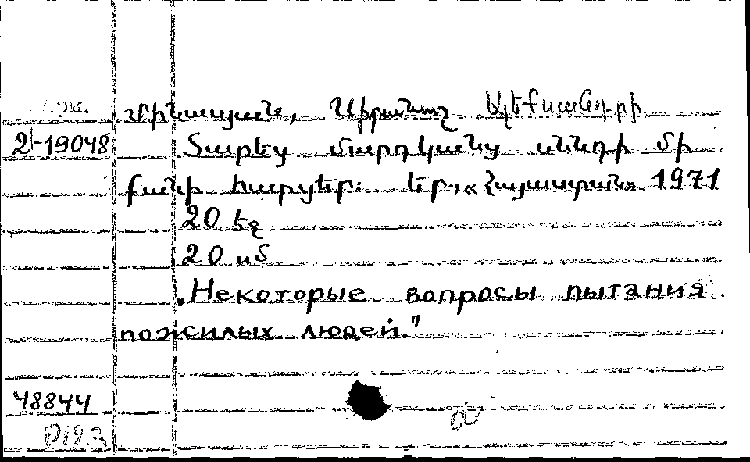 Մինասյան, Սիրանուշ Ալեքսանդրի
2-19048 Տարեց մարդկանց սննդի մի
քանի հարցեր: Եր., «Հայաստան» 1971
20 էջ
20 սմ
„Некоторые вопросы питания
пожилых людей."
48844